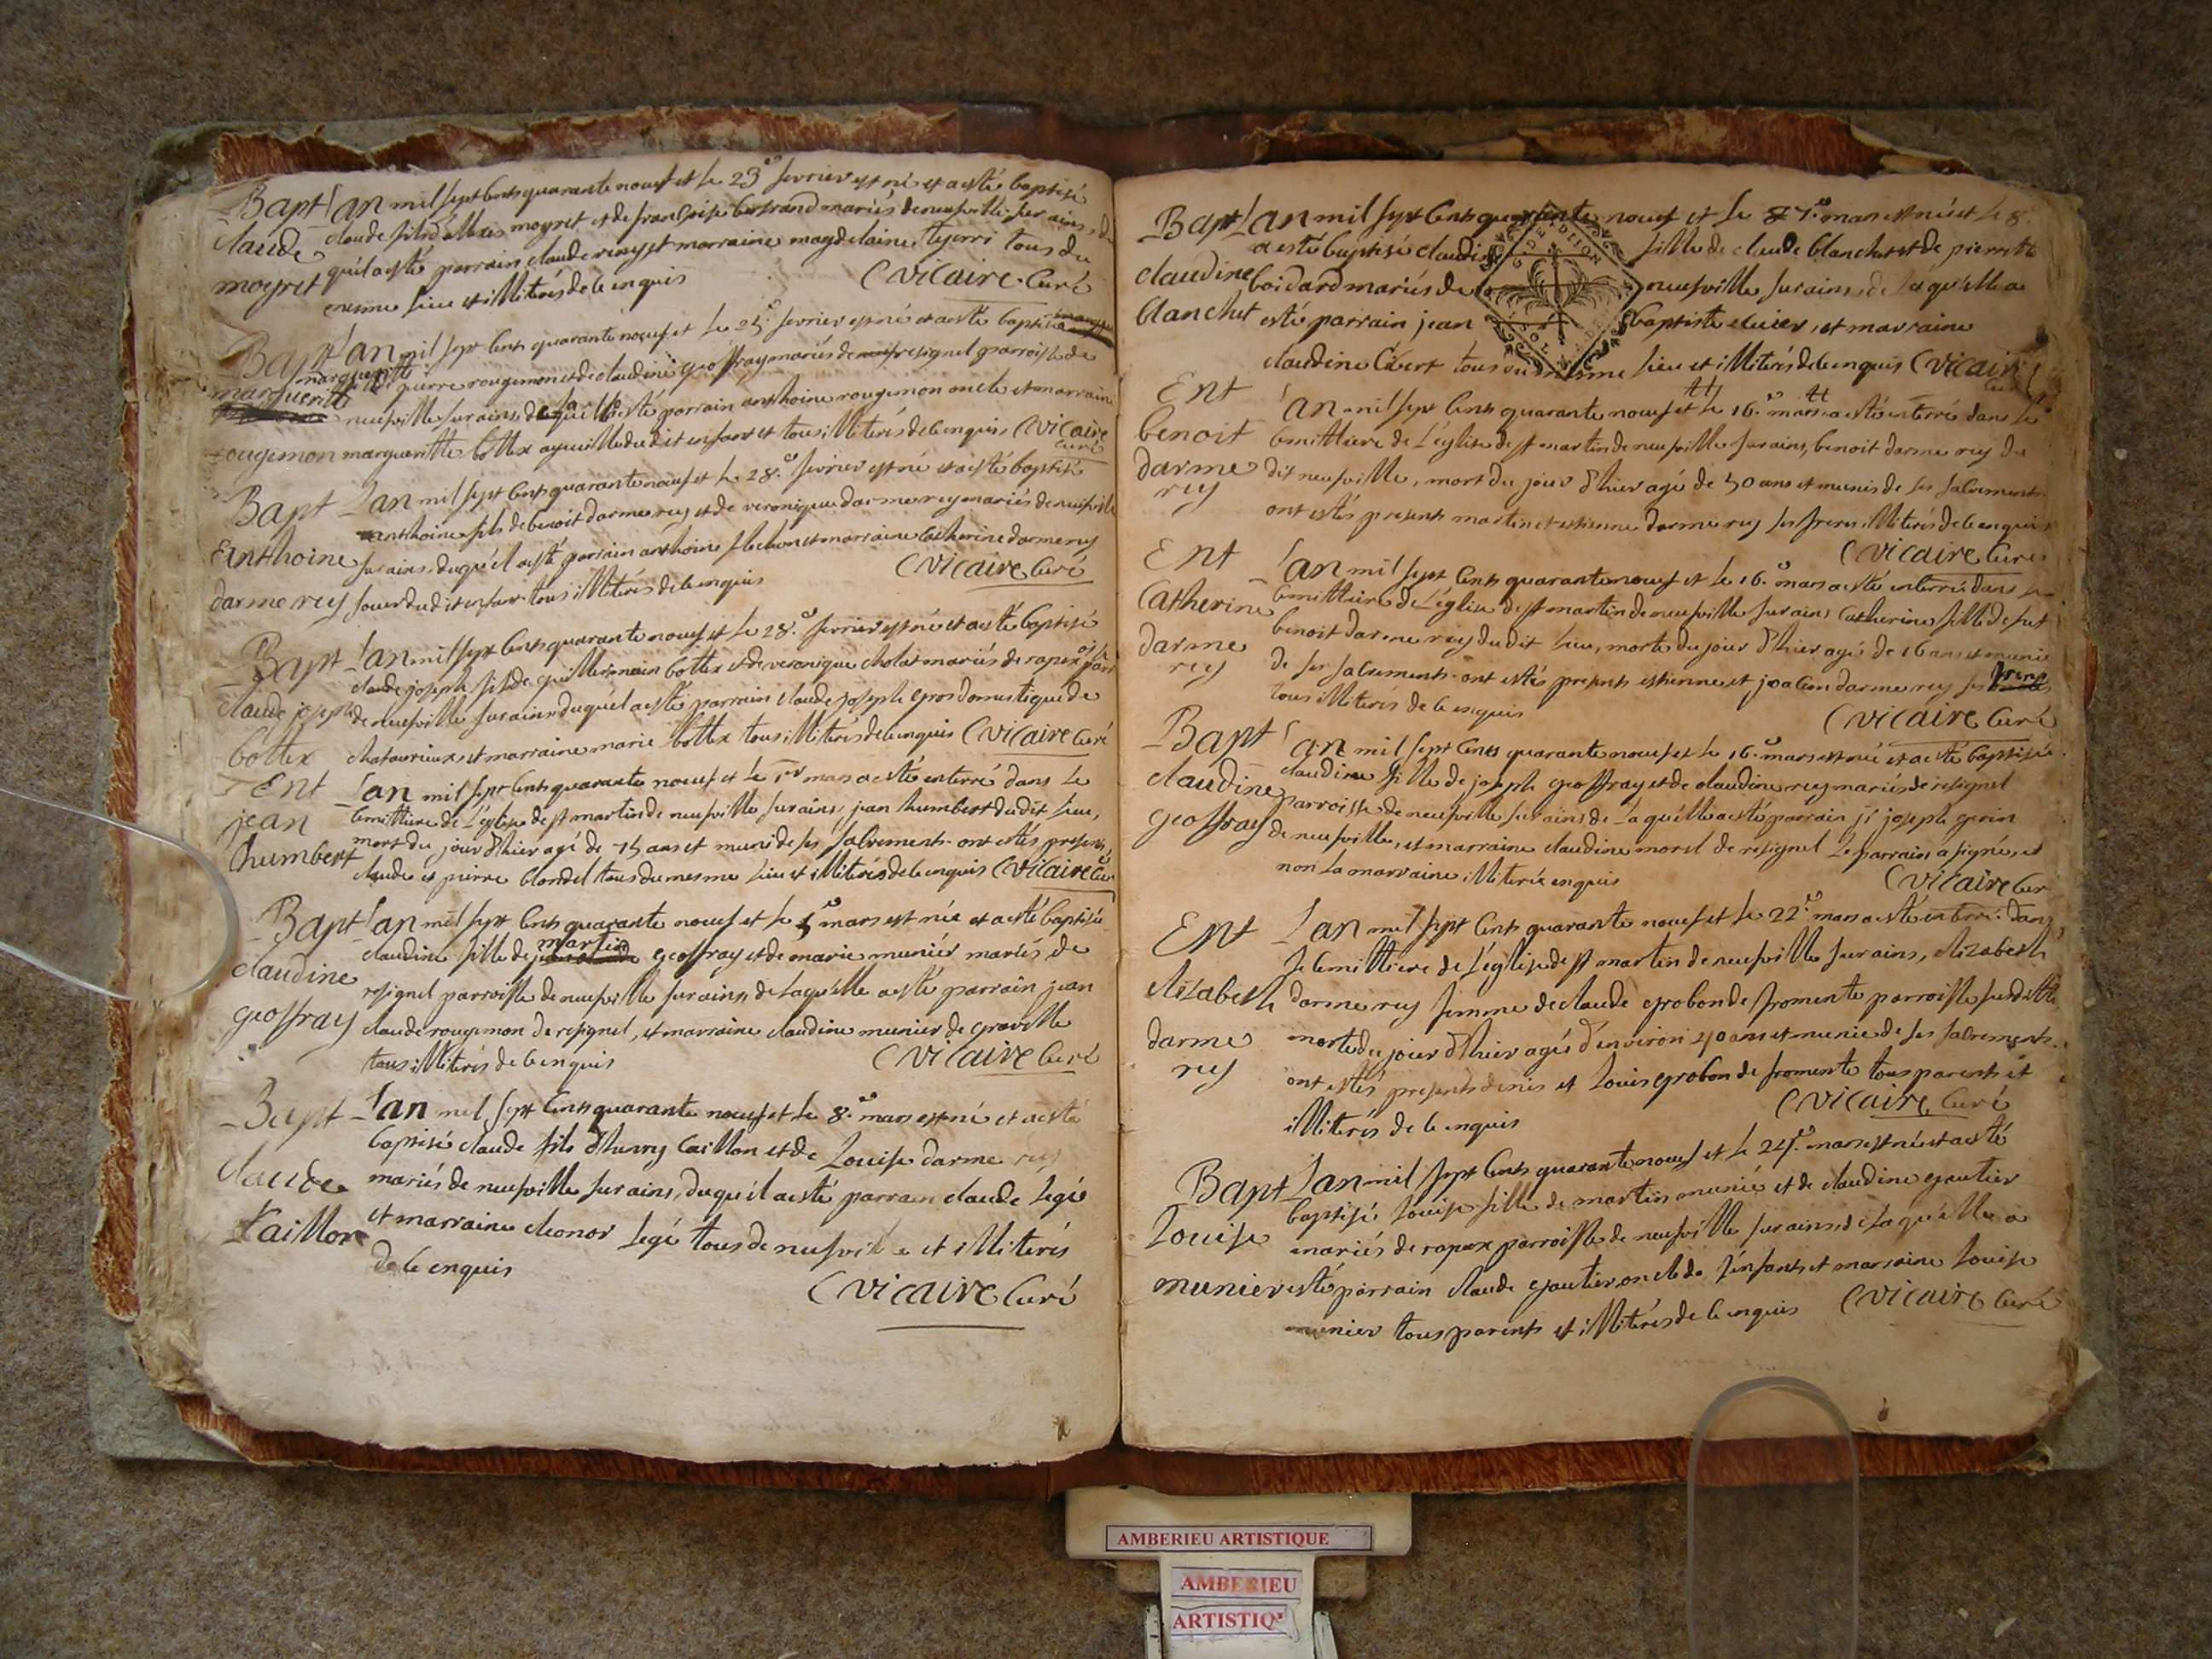 Bapt L'an mil sept cents quarante noeuf et le 23.e fevrier est né et a esté baptisé
claude claude fils d' moyret et de francoise bertrand mariés de neufville sur ains, de
moyret qu'il a esté parrain claude et marraine magdelaine tous du
mesme lieu et illiterés de ce enquis Cvicaire Curé
Bapt L'an mil sept cents quarante noeuf et le 25.e fevrier est né et a esté baptisé
marguerite
marguerite pierre rougemon et de claudine geoffray mariés de resignel parroisse de
neufville sur ains, de laquelle a esté parrain anthoine rougemon oncle et marraine
rougemon margueritte bottex ayeuille du dit enfant et tous illiterés de ce enquis Cvicaire
curé
Bapt L'an mil sept cents quarante noeuf et le 28.e fevrier est né et a esté baptisé
anthoine fils de benoit darmerey et de veronique darmerey mariés de neufville
Enthoine sur ains, duquél a esté parrain anthoine et marraine catherine darmerey
darmerey soeur du dit enfant tous illiterés de ce enquis Cvicaire Curé
Bapt L'an mil sept cents quarante noeuf et le 28.e fevrier est né et a esté baptisé
claude joseph fils de guillermain bottex et de veronique cholat mariés de rapex parr
claude joseph de neufville sur ains duquél a esté parrain claude joseph gros domestique de
bottex chatavrieux, et marraine marie bottex tous illiterés de ce enquis Cvicaire Curé
Ent L'an mil sept cents quarante noeuf et le 1er mars a esté enterré dans le
jean cemittiere de l'église de st martin de neufville sur ains, jean humbert du dit lieu,
humbert mort du jour d'hier agé de 75 ans et muni de ses sacrements. ont estés presents,
claude et pierre blondel tous du mesme lieu et illiterés de ce enquis Cvicaire Cur
Bapt L'an mil sept cents quarante noeuf et le 5e mars est née et a esté baptisée
martin
claudine fille de geoffray et de marie munier mariés de
claudine resignel parroisse de neufville sur ains, de laquélle a esté parrain jean
geoffray claude rougemon de resignel, et marraine claudine munier de graville
tous illiterés de ce enquis Cvicaire Curé
Bapt L'an mil sept cents quarante noeuf et le 8.e mars est né et a esté
baptisé claude fils d'henry Caillon et de Louise darme rey
claude mariés de neufville sur ains, duquél a esté parrain claude legé
Caillon et marraine eleonor legé tous de neufville et illiterés
de ce enquis
Cvicaire Curé
Bapt L'an mil sept cents quarante noeuf et le 7.e mars est née et le 8.
a esté baptisé claudine fille de claude blanchet et de pierrette
claudine boidard mariés de neufville sur ains, de laquélle a
blanchet esté parrain jean baptiste , et marraine
claudine tous du mesme lieu et illiterés de ce enquis Cvicaire
Curé
Ent L'an mil sept cents quarante noeuf et le 16.e mars a esté enterré dans le
benoit cemittiere de l'église de st martin de neufville sur ains, benoit darme rey du
darme dit neufville, mort du jour d'hier agé de 50 ans et munis de ses sacrements.
rey ont estés presents martin et estienne darme rey ses freres illiterés de ce enquis
Cvicaire Curé
Ent L'an mil sept cents quarante noeuf et le 16.e mars a esté enterré dans le
Catherine cemittiere de l'église de st martin de neufville sur ains Catherine fille de feu
darme benoit darme rey du dit lieu, morte du jour d'hier agé de 16 ans et munie
rey de ses sacrements. ont estés presents estienne et joachim darme rey ses freres
tous illiterés de ce enquis Cvicaire Curé
Bapt L'an mil sept cents quarante noeuf et le 16.e mars est née et a esté baptisée
claudine claudine fille de joseph geoffray et de claudine rey mariés de resignel
geoffray parroisse de neufville sur ains, de laquélle a esté parrain joseph
de neufville, et marraine claudine morel de resignel le parrain a signé, et
non la marraine illiterée enquis Cvicaire Cur
Ent L'an mil sept cents quarante noeuf et le 22.e mars a esté enterré dans
le cemittiere de l'église de st martin de neufville sur ains, elizabeth
elizabeth darme rey femme de claude grobon de fromente parroisse susditte
darme morte du jour d'hier agée d'environ 40 ans et munie de ses sacrements.
rey ont estés presents denis et Louis grobon de fromente tous parents et
illiterés de ce enquis Cvicaire Curé
Bapt L'an mil sept cents quarante noeuf et le 24.e mars est née et a esté
baptisée Louise fille de martin munié et de claudine gautier
Louise mariés de rapex parroisse de neufville sur ains, de laquélle a
munier esté parrain claude gautier oncle de l'enfant, et marraine Louise
munier tous parents et illiterés de ce enquis Cvicaire Curé
AMBERIEU ARTISTIQUE
AMBERIEU
ARTISTIQ